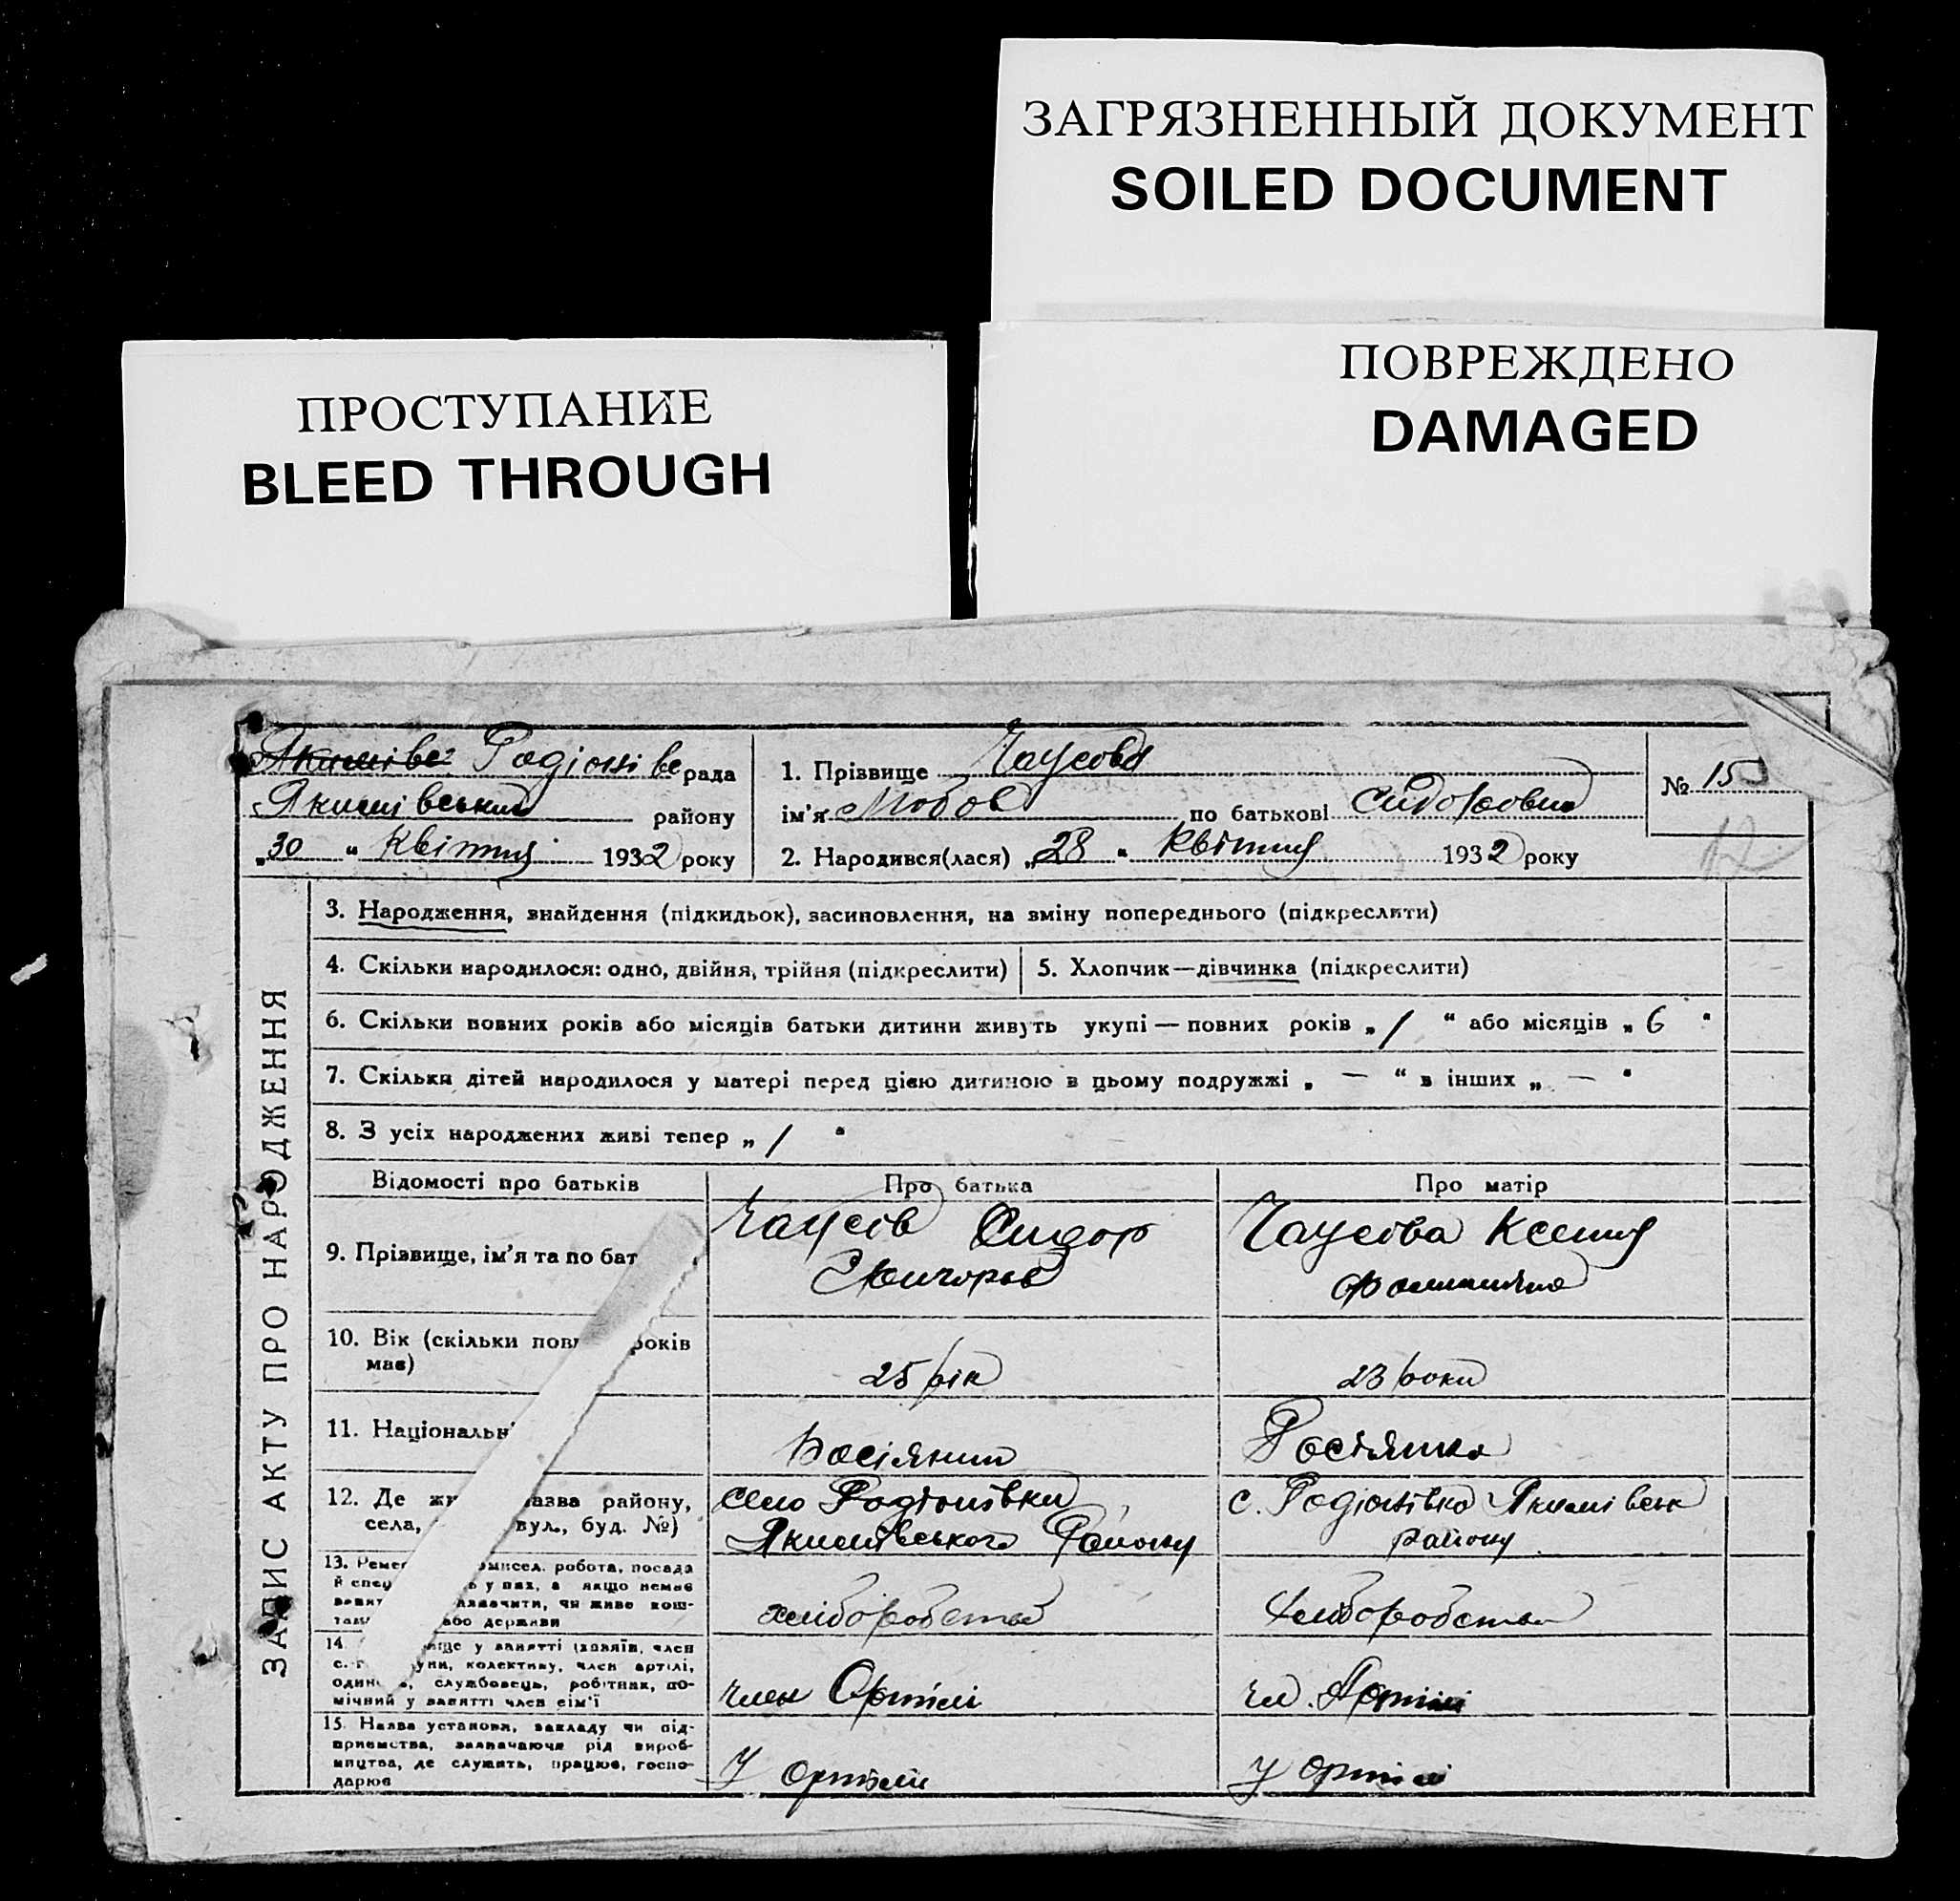 ЗАГРЯЗНЕННЫЙ ДОКУМЕНТ
SOILED DOCUMENT
ПОВРЕЖДЕНО
DAMAGED
ПРОСТУПАНИЕ
BLEED THROUGH
Родіонівс рада
Якимівський району
„30“ Квітня 1932 року
1. Прізвище Чаусова
ім'я по батькові Сидоровна
2. Народився(лася) „28“ Квітня 1932 року
№ 15
12
ЗАПИС АКТУ ПРО НАРОДЖЕННЯ
3. Народження, знайдення (підкидьок), засиновлення, на зміну попереднього (підкреслити)
4. Скільки народилося: одно, двійня, трійня (підкреслити)
5. Хлопчик—дівчинка (підкреслити)
6. Скільки повних років або місяців батьки дитини живуть укупі — повних років „ 1 “ або місяців „ 6 “
7. Скільки дітей народилося у матері перед цією дитиною в цьому подружжі „ — “ в інших „ — “
8. З усіх народжених живі тепер „ 1 “
Відомості про батьків
Про батька
Про матір
9. Прізвище, ім'я та по бат
Чаусів Сидор
Чаусова Ксенія
10. Вік (скільки пов років
має)
25 рік
23 роки
11. Національн
Росіянин
Росіянка
12. Де жи азва району,
села, вул., буд. №)
село Родіонівки
Якимівського Району
с. Родіонівка Якимівськ
району
13. Ремес омисел, робота, посада
й спец ь у них, а якщо немає
зазначити, чи живе кош-
або держави
хліборобство
хліборобство
14. ище у занятті (хазяїн, член
уни, колективу, член артілі,
один , службовець, робітник, по-
мічний у занятті член сім'ї
член Ортілі
чл. Артілі
15. Назва установи, закладу чи під-
приємства, зазначаючи рід вироб-
ництва, де служить, працює, госпо-
дарює
У ортілі
У ортілі